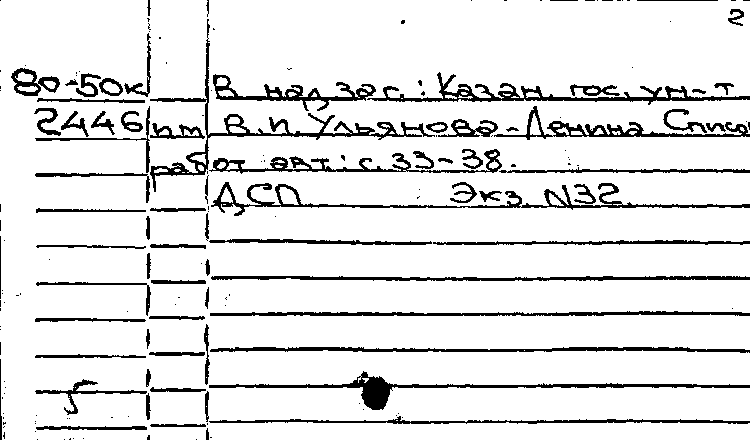 2
80-50к В надзаг.: Казан. гос. ун-т
2446 пт В.И. Ульянова-Ленина. Списо
работ авт.: с. 33-38.
ДСП Экз. N32.